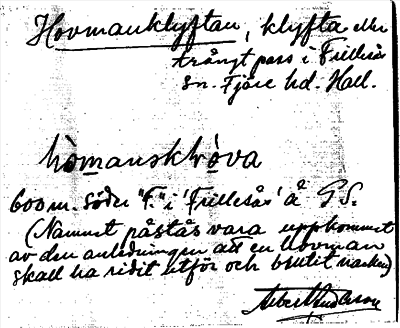 Hovmanklyftan, klyfta eller
trångt pass i Frillesås
sn. Fjäre hd. Hall.
hòmansklròva
600 m. söder "F." i 'Frillesås' å G.S.
(Namnet påstås vara uppkommet
av den anledningen att en hovman
skall ha ridit utför och brutit nacken)
Albert Anderson